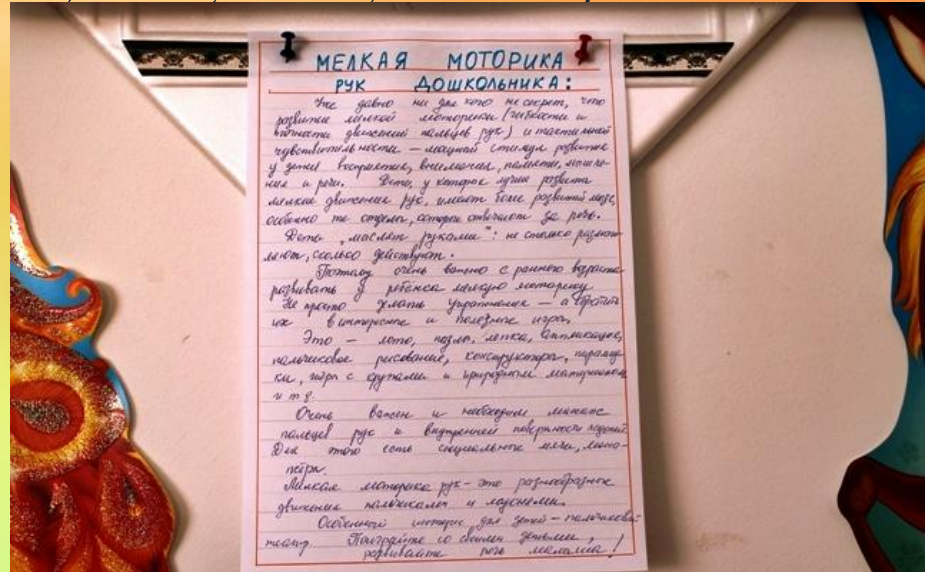 МЕЛКАЯ МОТОРИКА
РУК ДОШКОЛЬНИКА:
Уже давно ни для кого не секрет, что
развитие мелкой моторики (гибкости и
точности движений пальцев рук) и тактильной
чувствительности – мощный стимул развития
у детей восприятия, внимания, памяти, мышле-
ния и речи. Дети, у которых лучше развиты
мелкие движения рук, имеют более развитый мозг,
особенно те отделы, которые отвечают за речь.
Дети „мыслят руками": не столько размыш-
ляют, сколько действуют.
Поэтому очень важно с раннего возраста
развивать у ребёнка мелкую моторику.
Не просто делать упражнения – а обратить
их в интересные и полезные игры.
Это – лото, пазлы, лепка, аппликация,
пальчиковое рисование, конструкторы, пирамид-
ки, игры с крупами и природным материалом
и т.д.
Очень важен и необходим массаж
пальцев рук и внутренней поверхности ладоней.
Для этого есть специальные мячи,
Мелкая моторика рук – это разнообразные
движения пальчиками и ладонями.
Особенный интерес для детей – пальчиковый
театр. Поиграйте со своими детьми,
развивайте речь малыша!